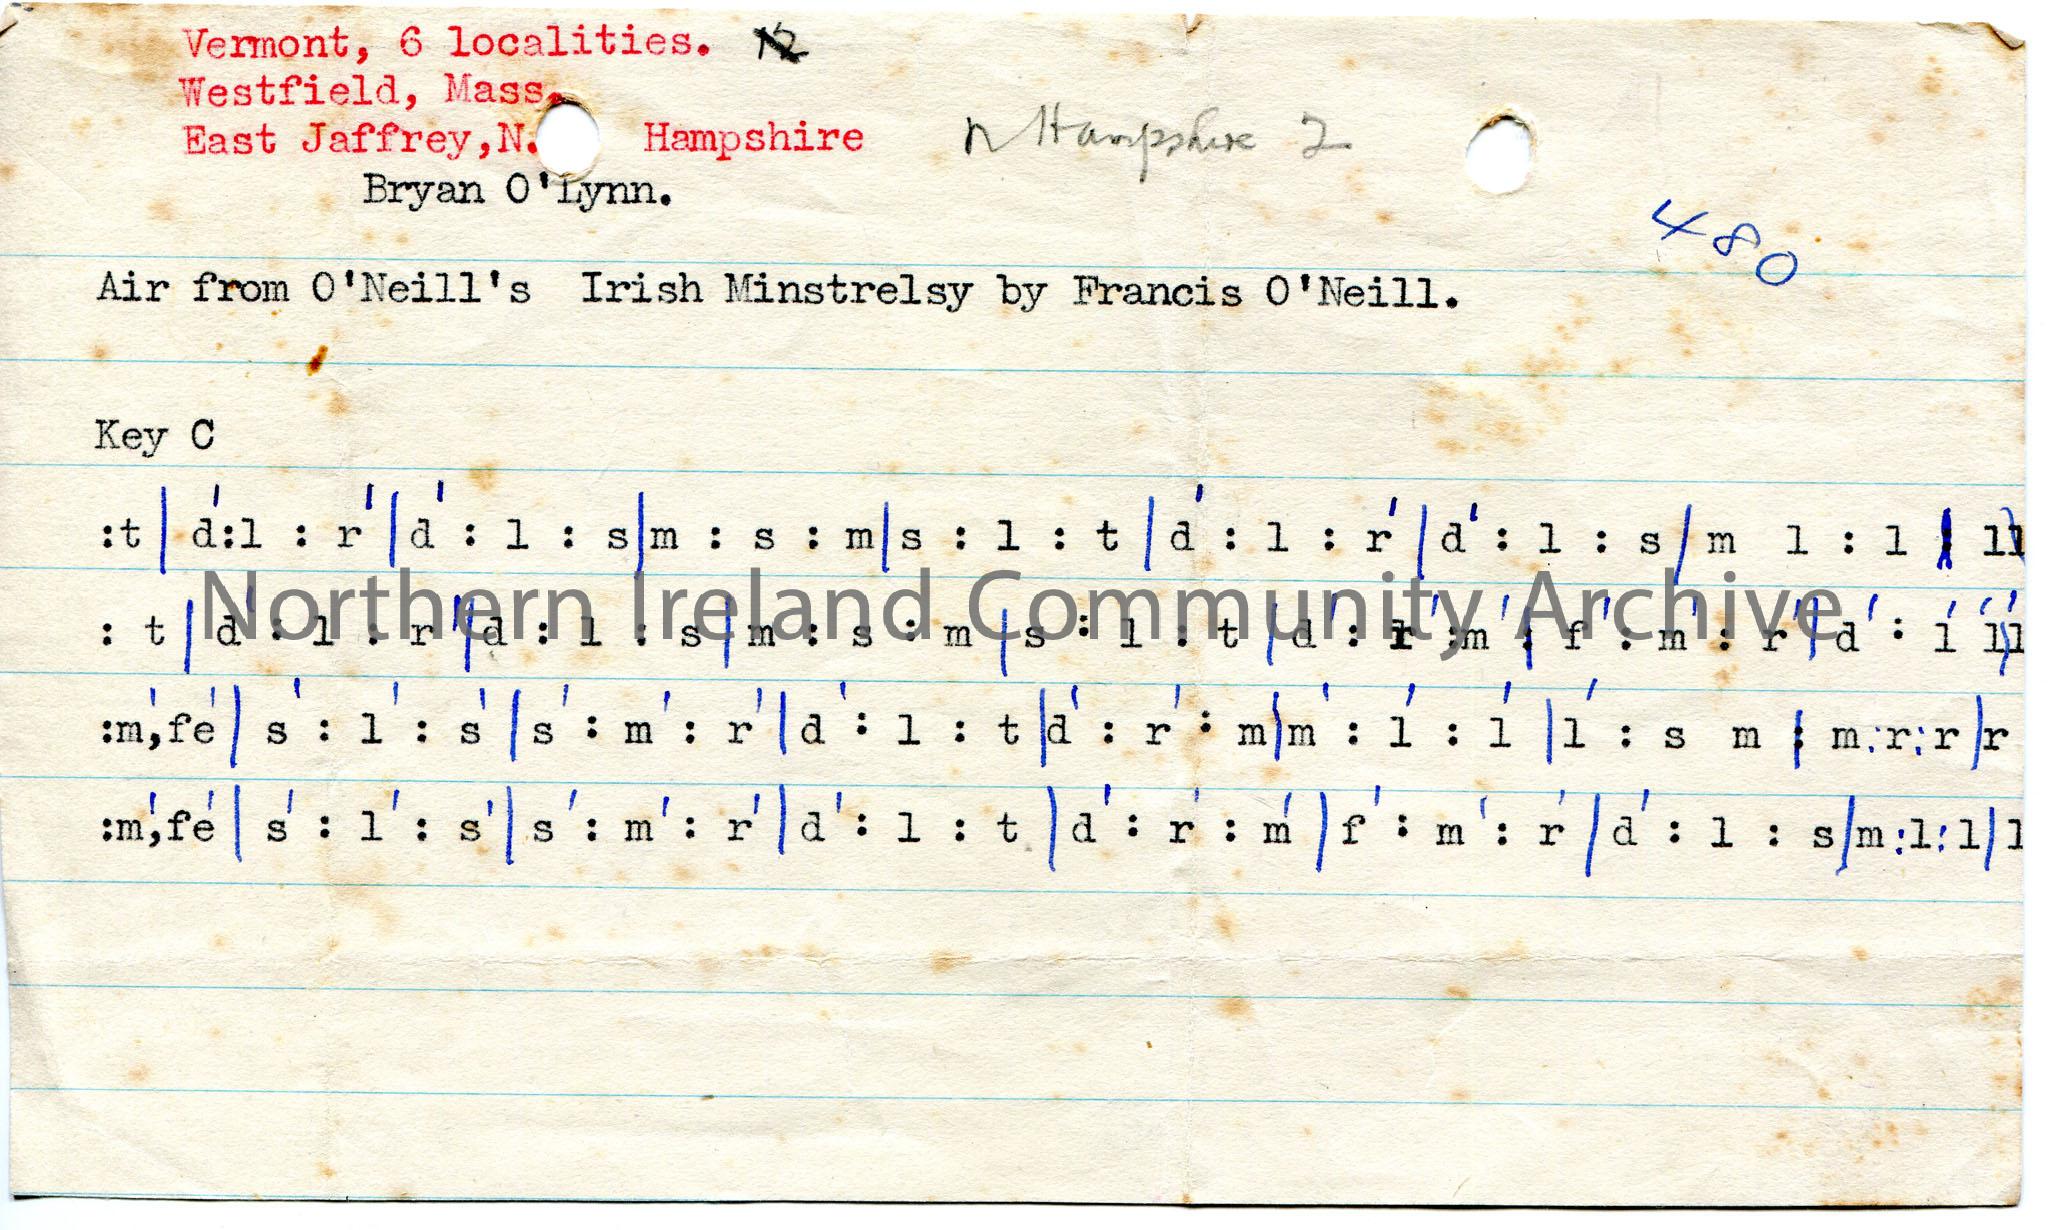 Vermont, 6 localities. 12
Westfield, Mass.
East Jaffrey,N. Hampshire
N Hampshire 2
Bryan O'Lynn.
480
Air from O'Neill's Irish Minstrelsy by Francis O'Neill.
Key C
:t | d':l : r' | d' : l : s | m : s : m | s : l : t | d' : l : r' | d' : l : s / m l : l | ll
Northern Ireland Community Archive
: t | d' : l : r' | d : l : s | m : s : m | s : l : t | d' : r' : m' | f' : m' : r' | d' : l' l'l
:m',fe' | s' : l' : s' | s' : m' : r' | d' : l : t | d' : r' : m | m' : l' : l' | l' : s m | m : r : r | r
:m',fe' | s' : l' : s' | s' : m' : r' | d' : l : t | d' : r' : m' | f' : m' : r' | d' : l : s | m : l : l | l